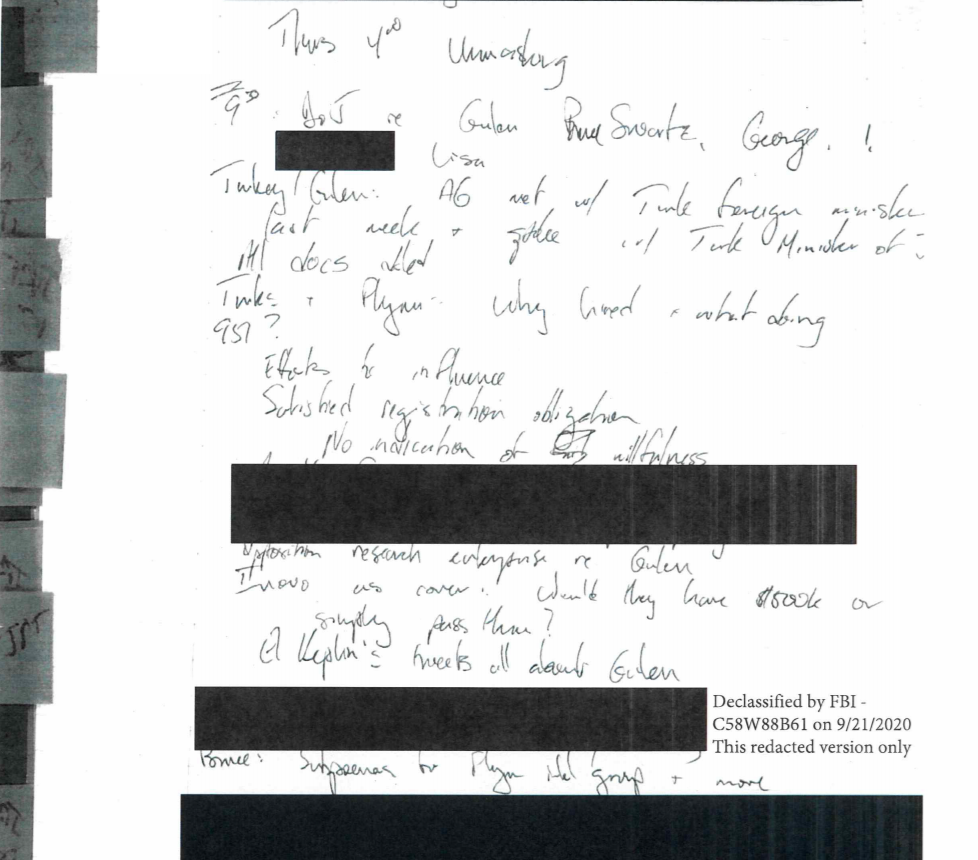 Thurs 4⁰⁰ Unmasking
9³⁰: DoJ re Gulen Bruce Swartz, George, !
Lisa
Turkey/Gulen: AG met w/ Turk foreign minister
last week + w/ Turk Minister of
All docs
Turks + Flynn - why hired + what doing
951?
Efforts to influence
Satisfied registration obligation
No indication of willfulness
Opposition research enterprise re Gulen
Inovo as cover: Would they have $500k or
simply pass thru?
's tweets all about Gulen
Declassified by FBI -
C58W88B61 on 9/21/2020
This redacted version only
Bruce: Subpoenas for Flynn Intel group + more